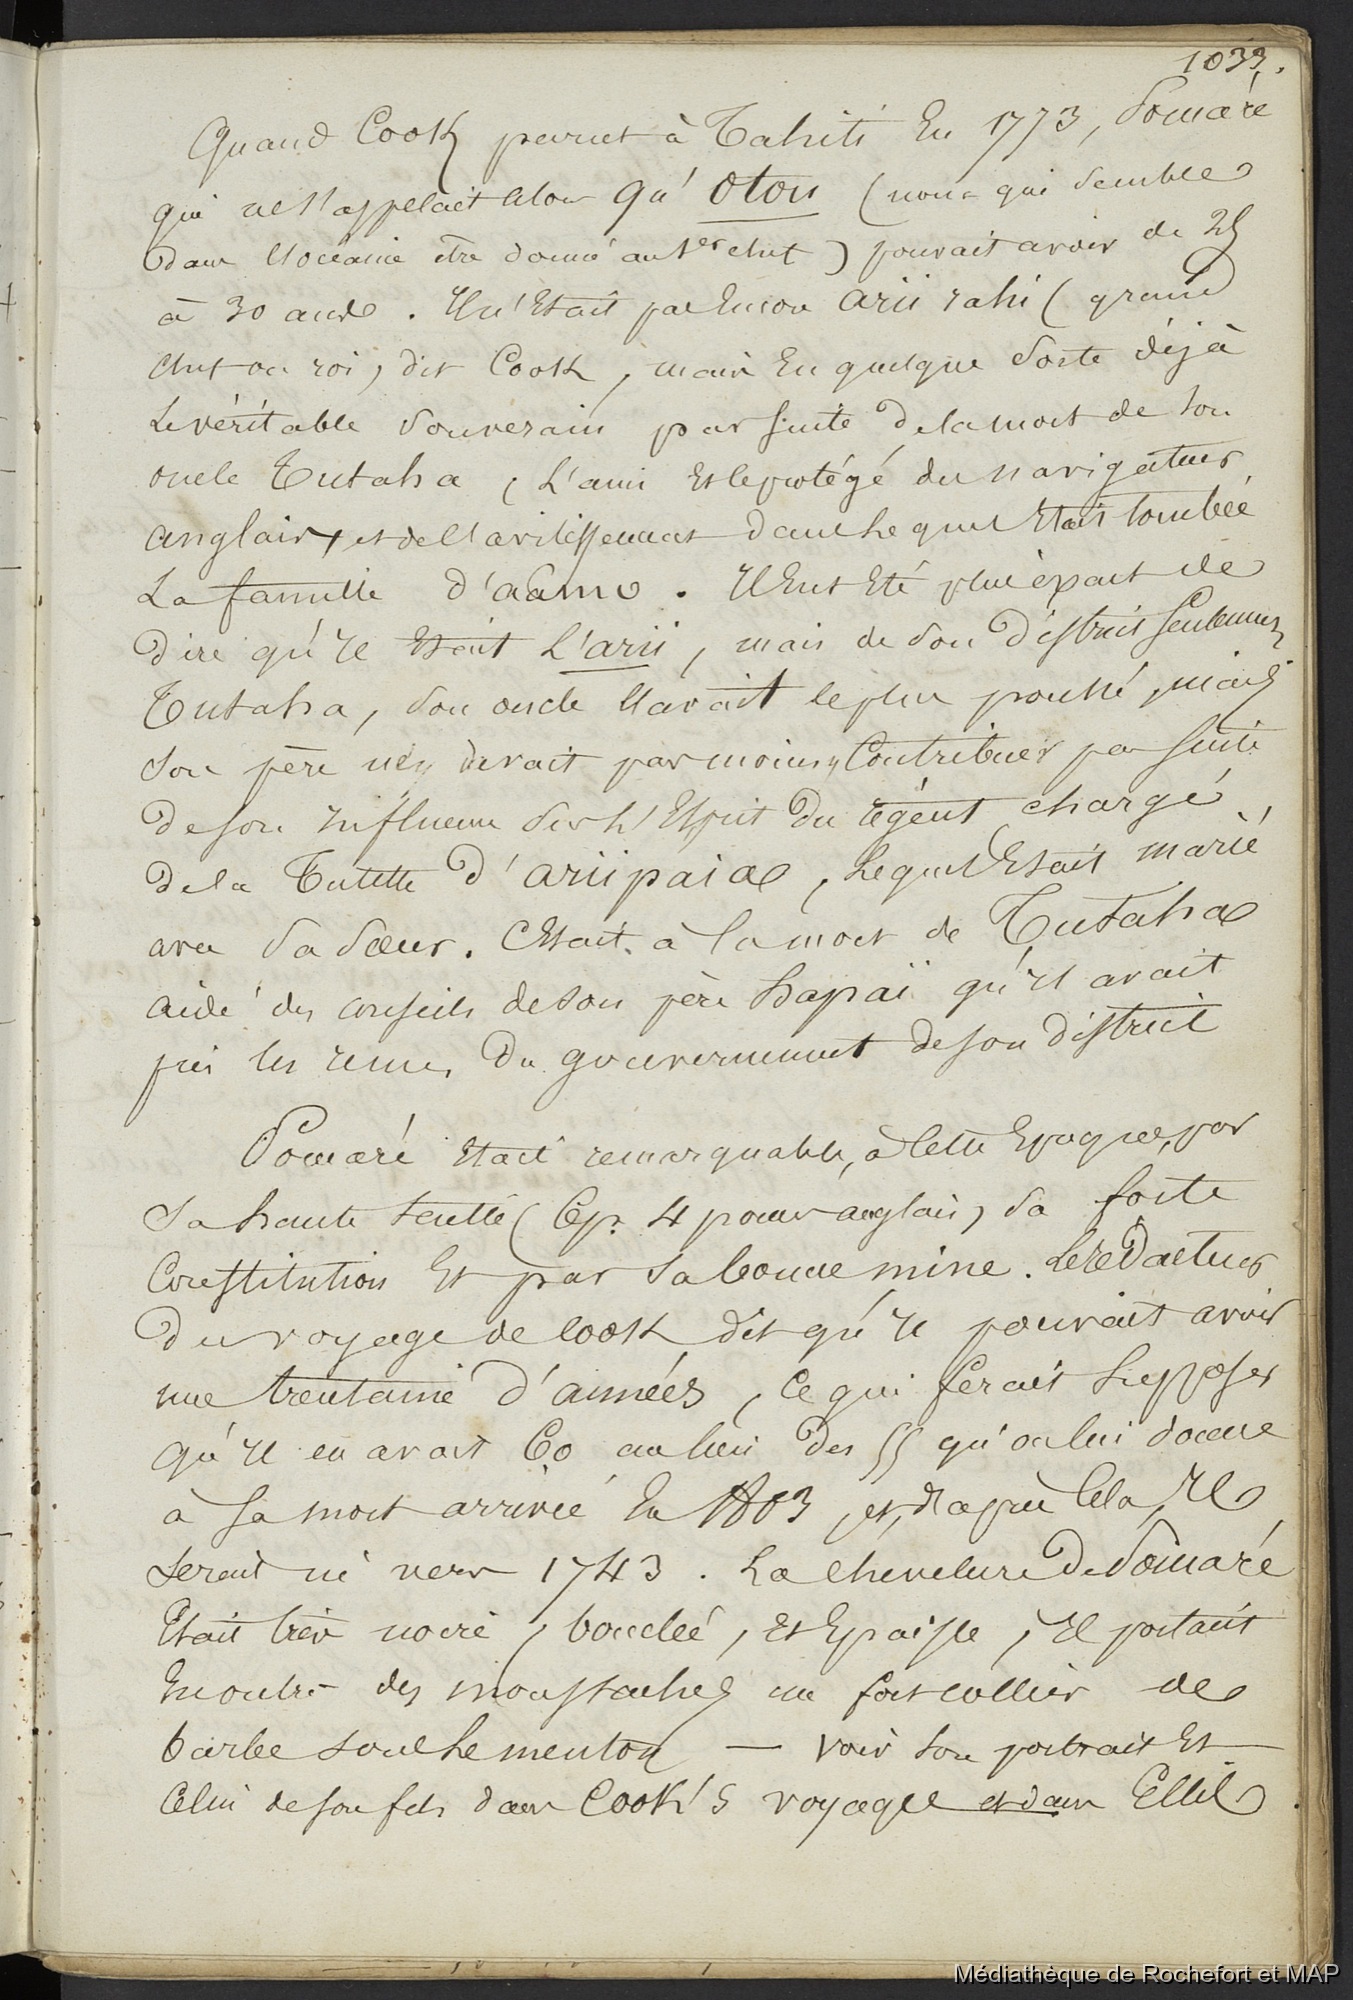 1033.
Quand Cook parut à Tahiti En 1773, Pomaré
qui ne s'appelait alors qu' Otou (nom qui semble
dans l'océanie être donné au 1er chef) pouvait avoir de 25
à 30 ans. Il n'Etait pas Encore arii rahi (grand
chef ou roi, dit Cook, mais En quelque sorte déjà
Le véritable souverain par suite de la mort de son
oncle Tutaha, L'ami Et le protégé du navigateur
anglais, et de l'avilissement dans lequel Etait tombée
La famille d'aamo. Il Eut Eté plus exact de
dire qu'il Etait L'arii, mais de son district seulement
Tutaha, son oncle l'avait le plus poussé, mais
son père n'en devait pas moins y Contribuer par suite
de son influence sur l'Esprit du régent chargé
de la Tutelle d'ariipaia, lequel Etait marié
avec sa sœur. C'Etait à la mort de Tutaha
aidé des conseils de son père hapaï qu'il avait
pris les rênes du gouvernement de son district
Pomaré Etait remarquable, à cette Epoque, par
sa haute taille (6p. 4 pouces anglais, sa forte
Constitution Et par sa bonne mine. Le rédacteur
du voyage de Cook dit qu'il pouvait avoir
une trentaine d'années, ce qui ferait supposer
qu'il en avait 60 au lieu des 55 qu'on lui donne
à sa mort arrivée En 1803, et, d'après cela, Il
serait né vers 1743. La chevelure de Pomaré
Etait très noire, bouclée, Et Epaisse, Il portait
En outre des moustaches un fort collier de
barbe sous le menton — voir son portrait Et
Celui de son fils dans Cook's voyages et dans Ellis
Médiathèque de Rochefort et MAP